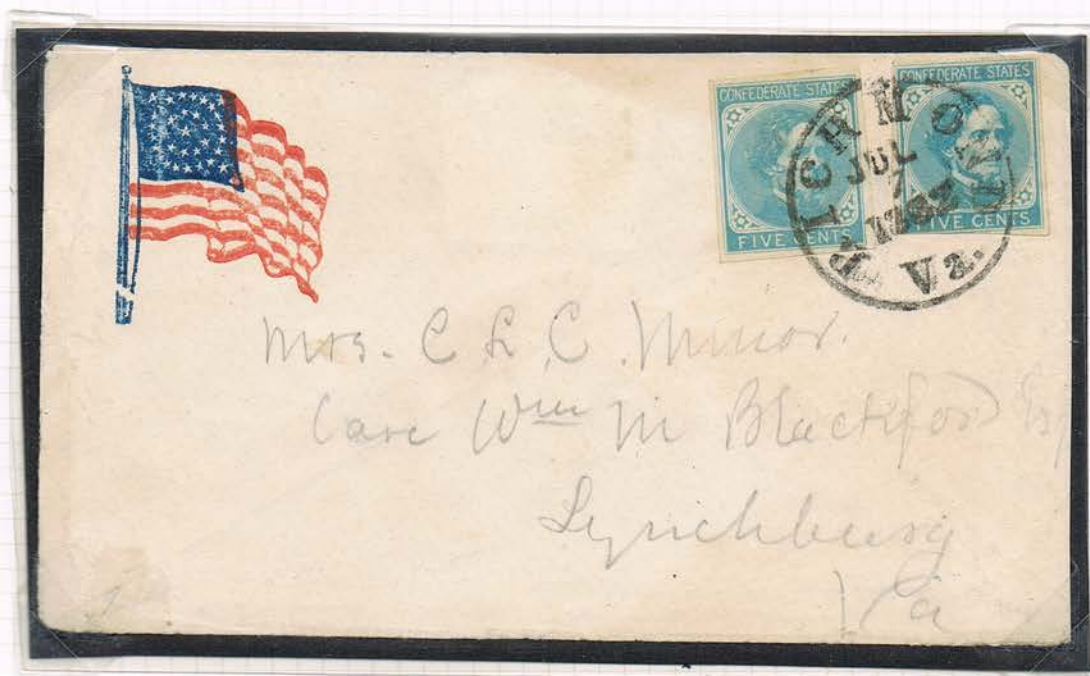 CONFEDERATE STATES
FIVE CENTS
CONFEDERATE STATES
FIVE CENTS
RICHMOND
JUL
1862
Va.
Mrs. C L. C. Minor.
Care Wm M Blackford Esq
Lynchburg
Va